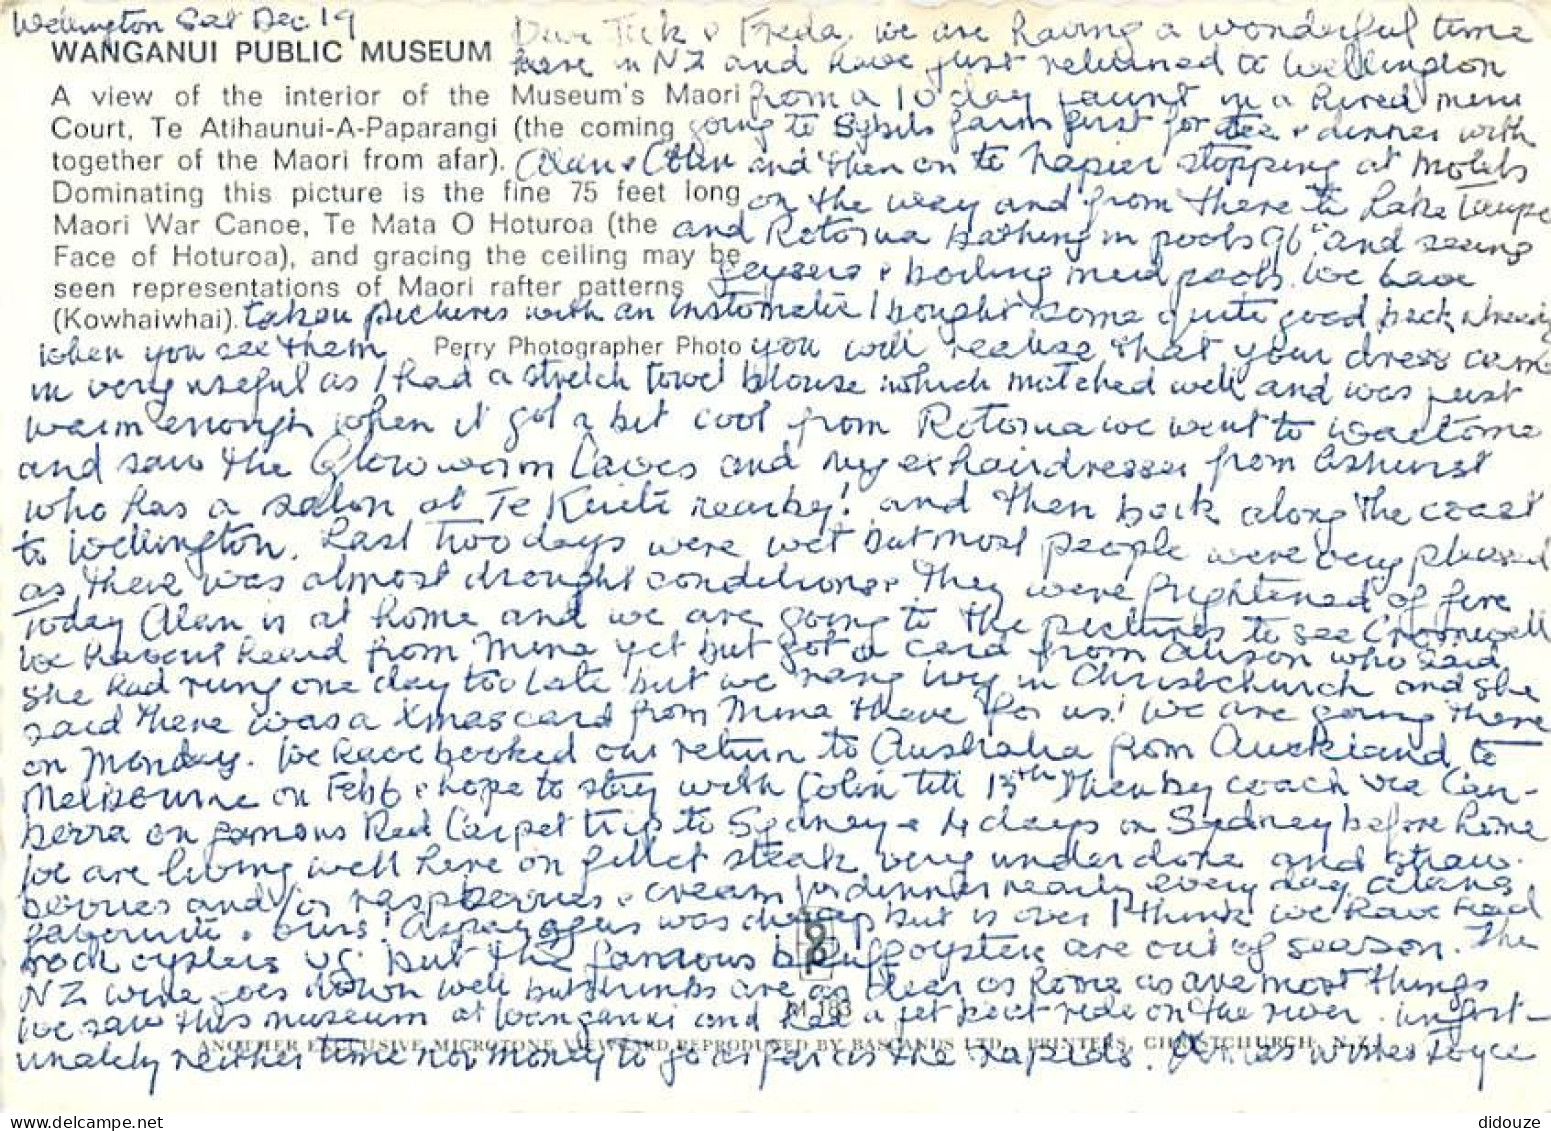 Wellington Sat Dec 19
WANGANUI PUBLIC MUSEUM
A view of the interior of the Museum's Maori
Court, Te Atihaunui-A-Paparangi (the coming
together of the Maori from afar).
Dominating this picture is the fine 75 feet long
Maori War Canoe, Te Mata O Hoturoa (the
Face of Hoturoa), and gracing the ceiling may be
seen representations of Maori rafter patterns
(Kowhaiwhai).
Perry Photographer Photo
Dear & Freda, we are having a wonderful time
here in NZ and have just returned to Wellington
from a 10 day jaunt in a hired mini
going to Sybils farm first for tea & dinner with
Alan & and then on to Napier stopping at motels
on the way and from there to Lake Taupo
and Rotorua bathing in pools 96° and seeing
geysers & boiling mud pools. We have
taken pictures with an instamatic I bought some quite good back already
when you see them you will realise that your dress came
in very useful as I had a stretch towel blouse which matched well and was just
warm enough when it got a bit cool from Rotorua we went to Waitomo
and saw the Glow worm Caves and my ex hairdresser from Ashurst
who has a salon at Te Kuiti nearby! and then back along the coast
to Wellington. Last two days were wet but most people were very pleased
as there was almost drought conditions & they were frightened of fire
Today Alan is at home and we are going to the pictures to see Cromwell
We havent heard from Mina yet but got a card from Alison who said
she had rung one day too late but we rang Ivy in Christchurch and she
said there was a Xmas card from Mina there for us! We are going there
on Monday. We have booked our return to Australia from Auckland to
Melbourne on Feb 6 & hope to stay with Colin till 13th Then by coach via Can-
berra on famous Red Carpet trip to Sydney & 4 days in Sydney before home
We are living well here on fillet steak very underdone and straw-
berries and/or raspberries & cream for dinner nearly every day, Alans
favourite & ours! Asparagus was cheap but is over I think we have had
rock oysters but the famous bluff oysters are out of season. The
NZ wine goes down well but drinks are as dear as home as are most things
We saw this museum at Wanganui and had a jet boat ride on the river. unfort-
unately neither time nor money to go as far as the rapids. Xmas wishes Joyce
M 183
ANOTHER EXCLUSIVE MICROTONE VIEWCARD REPRODUCED BY BASCANDS LTD., PRINTERS, CHRISTCHURCH, N.Z.
didouze